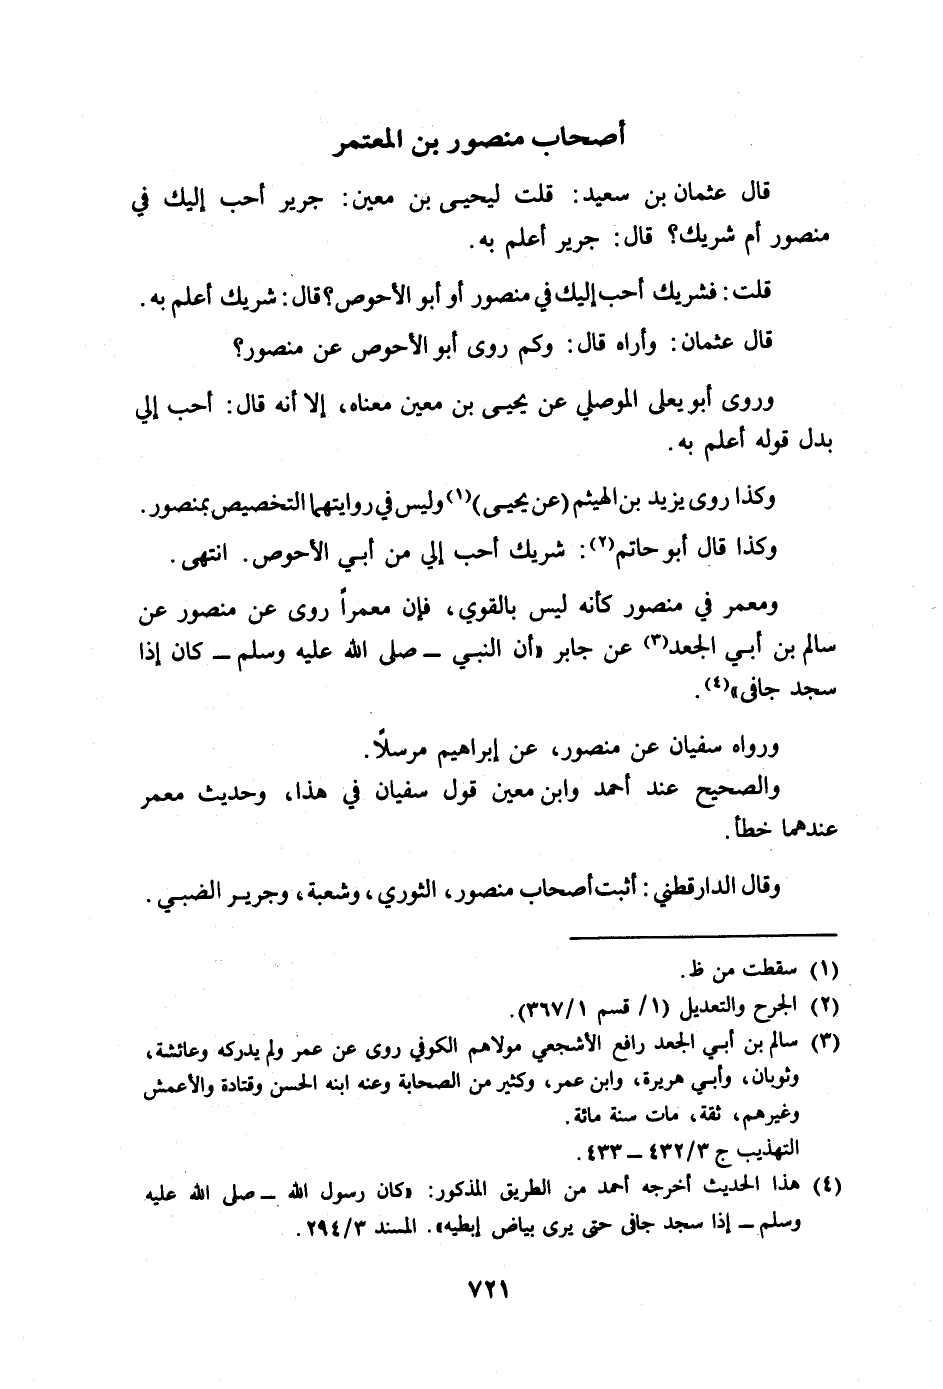 أصحاب منصور بن المعتمر
قال عثمان بن سعيد: قلت ليحيى بن معين: جرير أحب إليك في
منصور أم شريك؟ قال: جرير أعلم به.
قلت: فشريك أحب إليك في منصور أو أبو الأحوص؟ قال: شريك أعلم به.
قال عثمان: وأراه قال: وكم روى أبو الأحوص عن منصور؟
وروى أبو يعلى الموصلي عن يحيى بن معين معناه، إلا أنه قال: أحب إلي
بدل قوله أعلم به.
وكذا روى يزيد بن الهيثم (عن يحيى)(١) وليس في روايتهما التخصيص بمنصور.
وكذا قال أبو حاتم(٢): شريك أحب إلي من أبي الأحوص. انتهى.
ومعمر في منصور كأنه ليس بالقوي، فإن معمراً روى عن منصور عن
سالم بن أبي الجعد(٣) عن جابر «أن النبي ـ صلى الله عليه وسلم ـ كان إذا
سجد جافى»(٤).
ورواه سفيان عن منصور، عن إبراهيم مرسلًا.
والصحيح عند أحمد وابن معين قول سفيان في هذا، وحديث معمر
عندهما خطأ.
وقال الدارقطني: أثبت أصحاب منصور، الثوري، وشعبة، وجرير الضبي.
(١) سقطت من ظ.
(٢) الجرح والتعديل (١/ قسم ٣٦٧/١).
(٣) سالم بن أبي الجعد رافع الأشجعي مولاهم الكوفي روى عن عمر ولم يدركه وعائشة،
وثوبان، وأبي هريرة، وابن عمر، وكثير من الصحابة وعنه ابنه الحسن وقتادة والأعمش
وغيرهم، ثقة، مات سنة مائة.
التهذيب ج ٤٣٢/٣ ـ ٤٣٣.
(٤) هذا الحديث أخرجه أحمد من الطريق المذكور: «كان رسول الله ـ صلى الله عليه
وسلم ـ إذا سجد جافى حتى يرى بياض إبطيه». المسند ٢٩٤/٣.
٧٢١